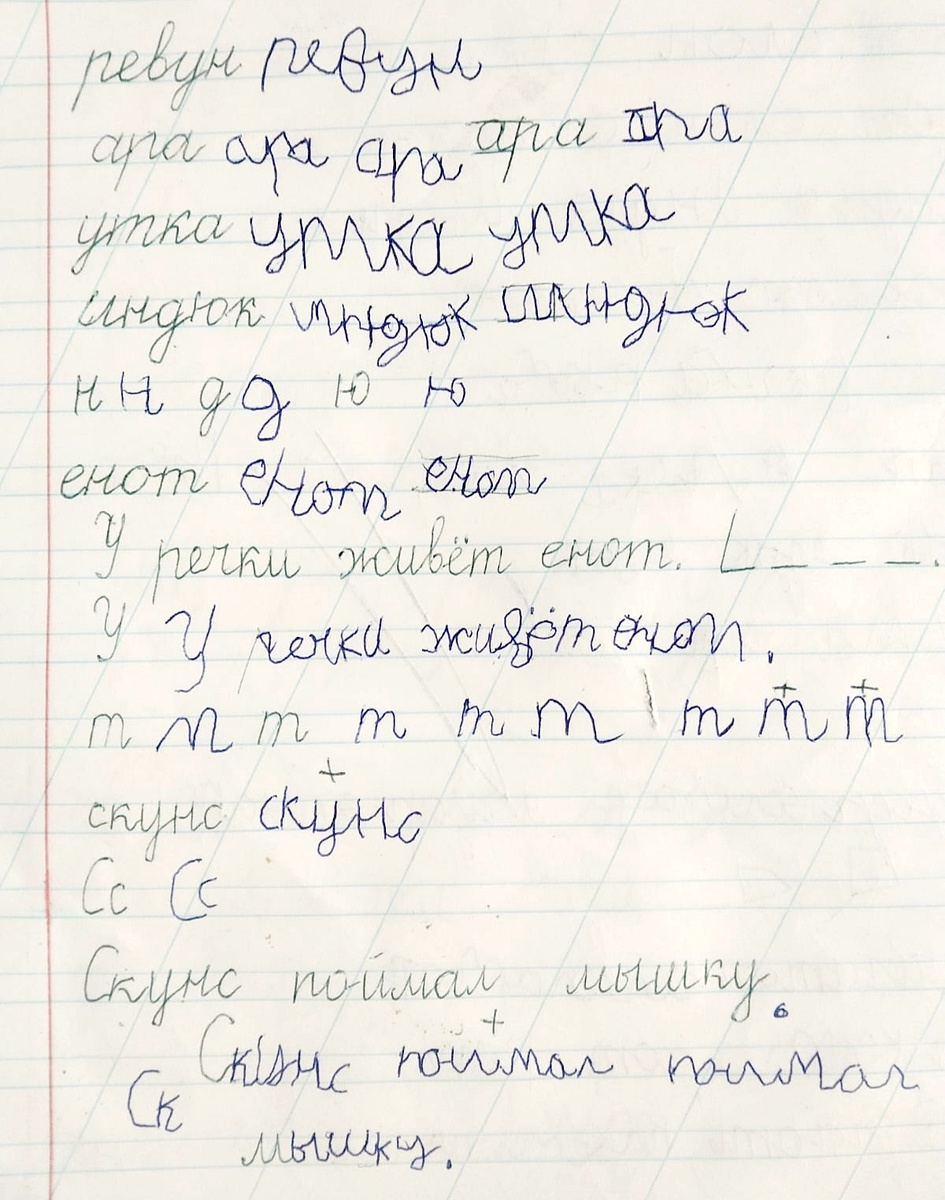 ревун ревун
ара ара ара ара ара
утка утка утка
индюк индюк индюк
н н д д ю ю
енот енот енот
У речки живёт енот. L _ _ _ _.
У У речки живёт енот.
т т т т т т т т т
скунс скунс
Сс Сс
Скунс поймал мышку.
Скунс поймал поймал
Ск
мышку.